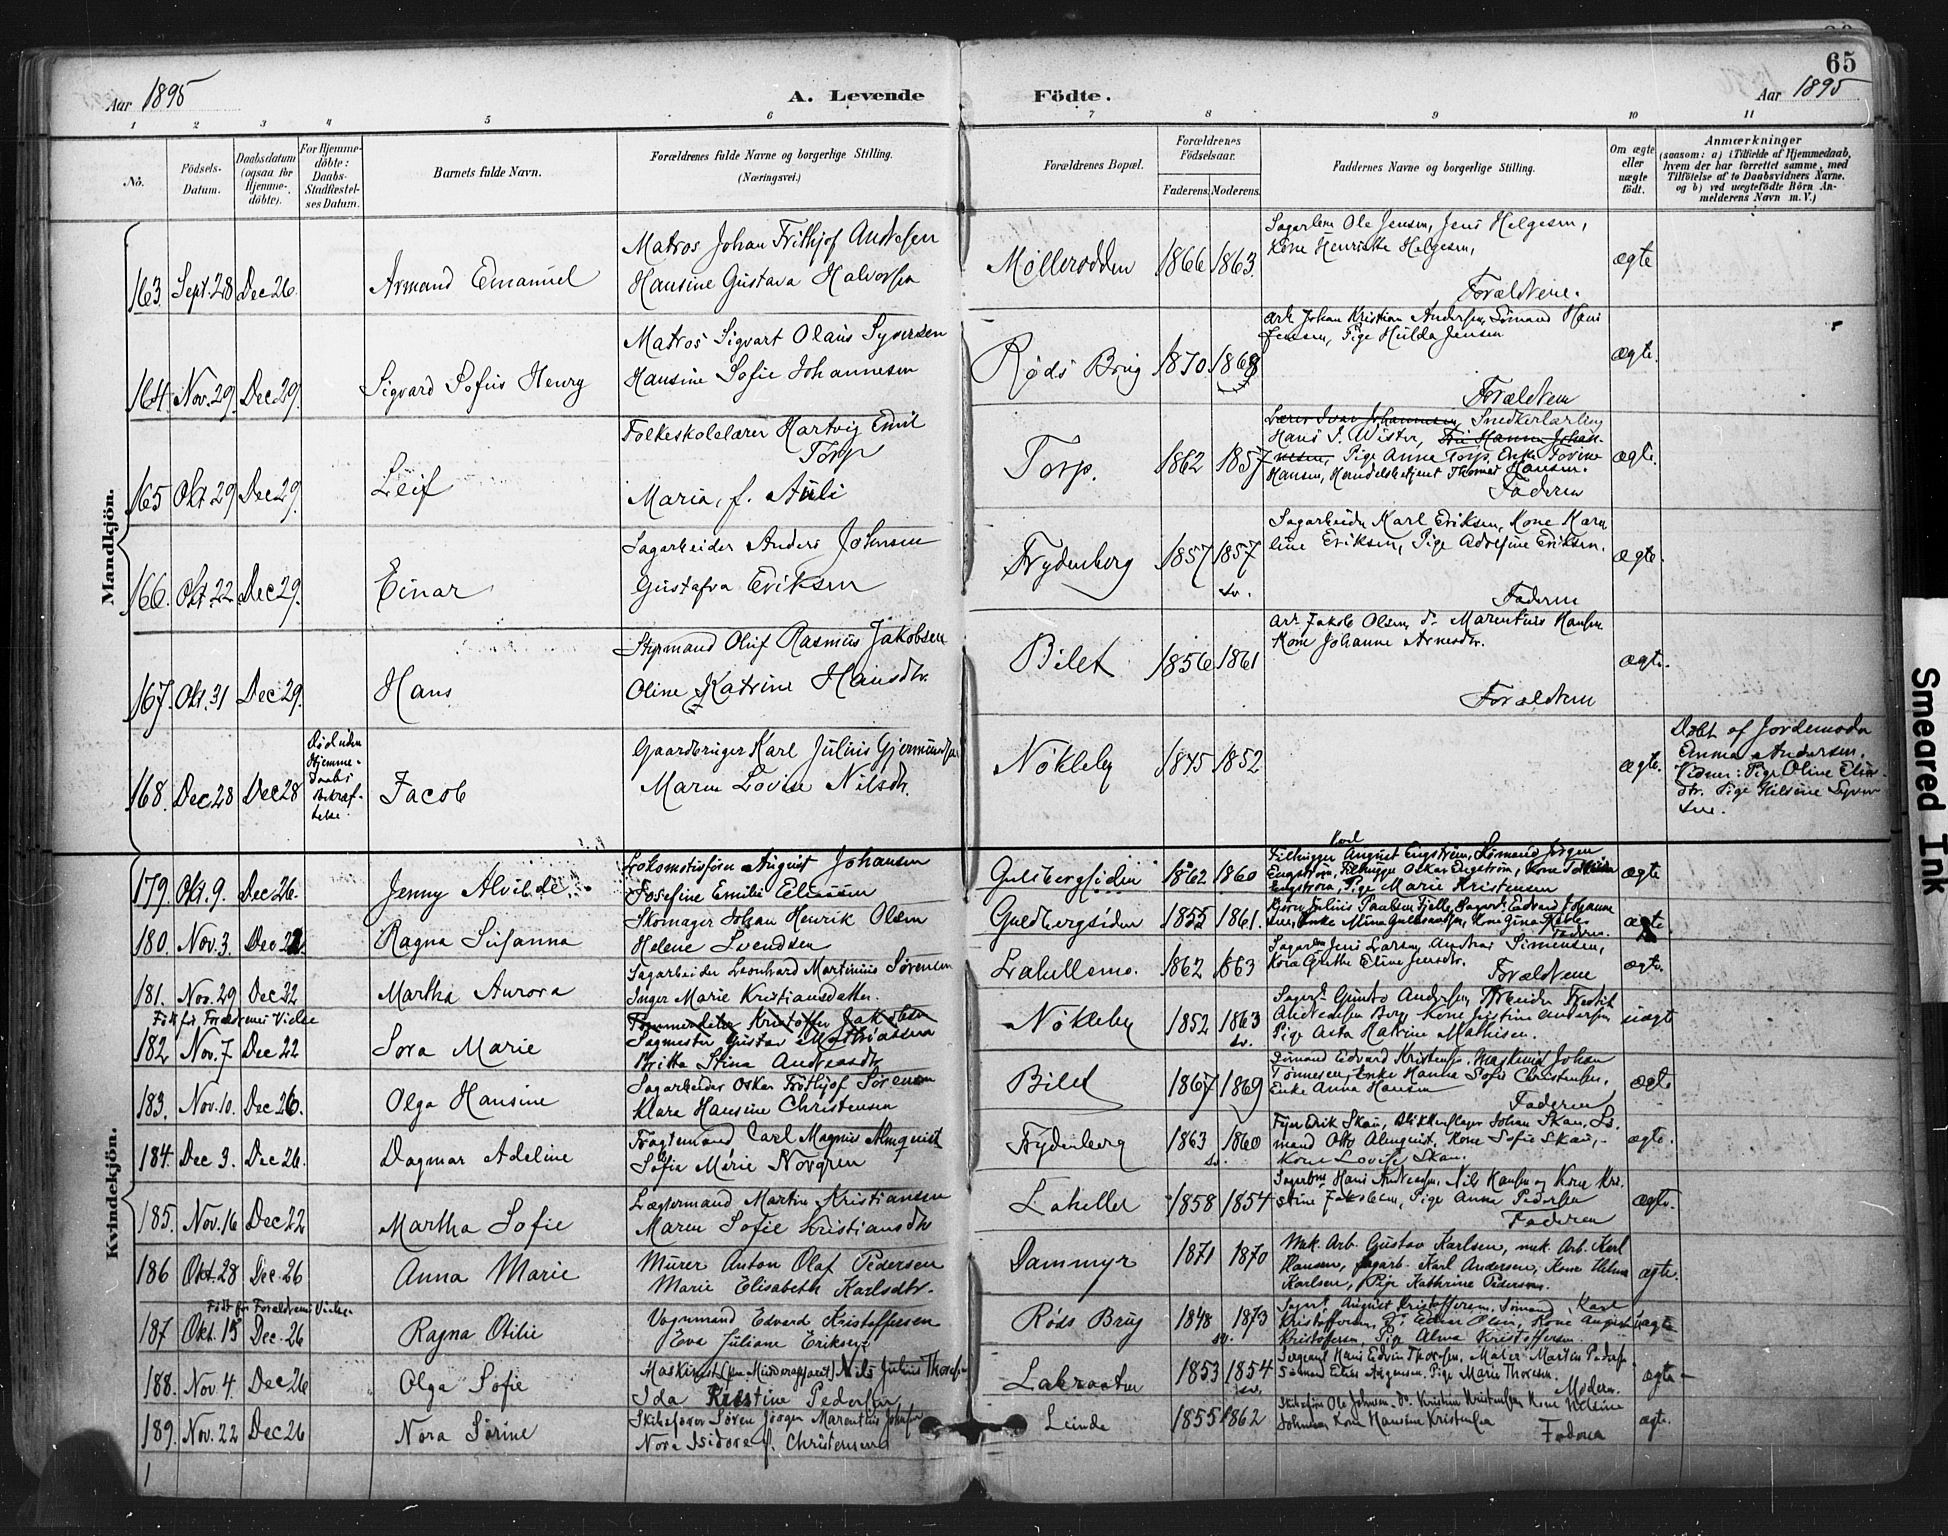 65
Aar 1895
A. Levende Födte.
Aar 1895
1 2 3 4 5 6 7 8 9 10 11
No.
Födsels-Datum.
Daabsdatum (ogsaa for Hjemme-döbte).
For Hjemme-döbte: Daabs-Stadfæstel-ses Datum.
Barnets fulde Navn.
Forældrenes fulde Navne og borgerlige Stilling.
(Næringsvei.)
Forældrenes Bopæl.
Forældrenes Födselsaar.
Faderens. Moderens.
Faddernes Navne og borgerlige Stilling.
Om ægte eller uægte födt.
Anmærkninger
(saasom: a) i Tilfælde af Hjemmedaab, hvem der har forrettet samme, med Tilföielse af to Daabsvidners Navne, og b) ved uægtefödte Börn Anmelderens Navn m. V.)
Mandkjön.
163. Sept. 28 Dec 26. Armand Emanuel
Matros Johan Frithjof Andresen
Hansine Gustava Halvorsen
Møllerodden 1866 1863.
Sagarb Ole Jensen, Jens Helgesen,
Kone Henriette Helgesen,
Forældrene.
ægte
164. Nov. 29. Dec 29. Sigvard Sofus Henry
Matros Sigvart Olaus Syversen
Hansine Sofie Johannesen
Røds Brug 1870. 1868
Arb Johan Kristian Andersen, Sømand Hans
Jensen, Pige Hulda Jensen
Forældrene
ægte.
165 Okt. 29. Dec 29. Leif
Folkeskolelærer Hartvig Emil
Torp
Maria, f. Auli
Torp. 1862 1857
Lærer Ivar Johannesen, Snedkerlærling
Hans S. Wister, Fru Hanna Johan-
nesen, Pige Anna Torp, Enke Jorine
Hansen, Handelsbetjent Thomas Hansen.
Faderen
ægte.
166. Okt. 22. Dec 29. Einar
Sagarbeider Anders Johnsen
Gustafva Eriksen
Frydenberg 1857 1857
sv.
Sagarbeider Karl Eriksen, Kone Karo
line Eriksen, Pige Adolfine Eriksen.
Faderen
ægte.
167. Okt. 31 Dec 29. Hans
Styrmand Oluf Rasmus Jakobsen
Oline Katrine Hansdtr.
Bilet 1856 1861
Arb. Jakob Olsen, do Marentius Hansen
Kone Johanne Arnesdtr.
Forældrene
ægte.
168. Dec 28 Dec 28
Død uden
Hjemme-
daabs
bekræf-
telse.
Jacob
Gaardbruger Karl Julius Gjermundsen
Maren Lovise Nilsdtr.
Nökleby 1845 1852
ægte.
Døbt af Jordemoder
Emma Andersen.
Vidner: Pige Oline Elin-
dtr. Pige Helene Syver
sen.
Kvindekjön.
179. Okt. 9. Dec 26. Jenny Alvilde.
Lokomotivfører August Johansen
Josefine Emilie Eliassen
Guldbergsiden 1862 1860
Karl
Filhugger August Engström, Sømand Jörgen
Engström, Filhugger Oskar Engström, Kone
Engström, Pige Marie Kristensen
ægte
180. Nov. 3. Dec 22. Ragna Susanna
Skomager Johan Henrik Olsen
Helene Svendsen
Guldbergsiden 1855 1861.
Björn Julius Paulsen Fjelle, Sagarb Edvard Johanne
sen, Enke
Faderen.
ægte.
181. Nov. 29 Dec 22 Martha Aurora
Sagarbeider Leonhard Martinius Sørensen
Inger Marie Kristiansdatter.
Lahellemo. 1862 1863
Sagarb Jens Larsen, Andreas Simensen,
Kone Grethe Eline Jensdtr.
Forældrene
ægte.
Født før Forældrenes Vielse
182 Nov. 7 Dec 22 Sora Marie
Tømmerdeler Kristoffer Jakobsen
Sagmester Gustav Matthiassen
Britta Stina Andreasdtr
Nökleby 1852 1863
sv.
Sagarb. Gustav Andersen, Arbeider Fredrik
Andreassen Berg, Kone Justine Andersen
Pige Asta Katrine Mathisen.
uægte
183. Nov. 10. Dec 26. Olga Hansine
Sagarbeider Oskar Fritthjof Sørensen
Klara Hansine Christensen
Bilet 1867 1869
Sömand Edvard Kristensen, Maskinist Johan
Tønnesen, Enke Hanna Sofie Christensen,
Enke Anna Hansen
Faderen
ægte
184. Dec 3. Dec 26. Dagmar Adeline
Fragtemand Carl Magnus Almquist
Sofia Marie Norgren
Frydenberg 1863 1860
sv.
Fyrb Erik Skau, Blikkenslager Johan Skau, Sø-
mand Otto Almquist, Kone Sofie Skau,
Kone Lovise Skau.
ægte.
185. Nov. 16 Dec 22 Martha Sofie
Lægtermand Martin Kristiansen
Maren Sofie Kristiansdtr
Lahellen 1858 1854
Sagarbm Hans Andreassen, Nils Hansen og Kone Kri-
stine Jakobsen, Pige Anna Pedersen
Faderen
ægte.
186 Okt. 28 Dec. 26 Anna Marie
Murer Anton Olaf Pedersen
Marie Elisabeth Karlsdtr.
Dammyr 1871 1870
Mek. Arb. Gustav Karlsen, mek. Arb. Karl
Hansen, Sagarb. Karl Andersen, Kone Helma
Karlsen, Pige Kathrine Pedersen.
ægte.
Født før Forældrenes Vielse
187 Okt. 15 Dec. 26 Ragna Otilie
Vognmand Edvard Kristoffersen
Eva Juliane Eriksen
Røds Brug 1848 1873
sv.
Sagarb. August Kristoffersen, Sømand Karl
Kristoffersen, do Edvar Olsen, Kone August
Kristoffersen, Pige Alma Kristoffersen.
uægte
188. Nov 4. Dec 26 Olga Sofie
Maskinist (paa Mudderapparat) Nils Julius Thoresen
Ida Kristine Pedersen
Lakraaten 1853 1854
sv.
Sergeant Hans Edvin Thoresen, Maler Martin Pedersen
Sömand Elias Jörgensen, Pige Marie Thoresen.
Moderen.
ægte
189. Nov. 22 Dec 26 Nora Sörine
Skibsfører Søren Jörgen Marentius Johnsen
Nora Isidora f. Christensen
Leinda 1855 1862
Skibsförer Ole Johnsen, do. Kristian Kristensen, Kone Helene
Johnsen, Kone Hansine Kristensen
Faderen
ægte.
1
Smeared Ink